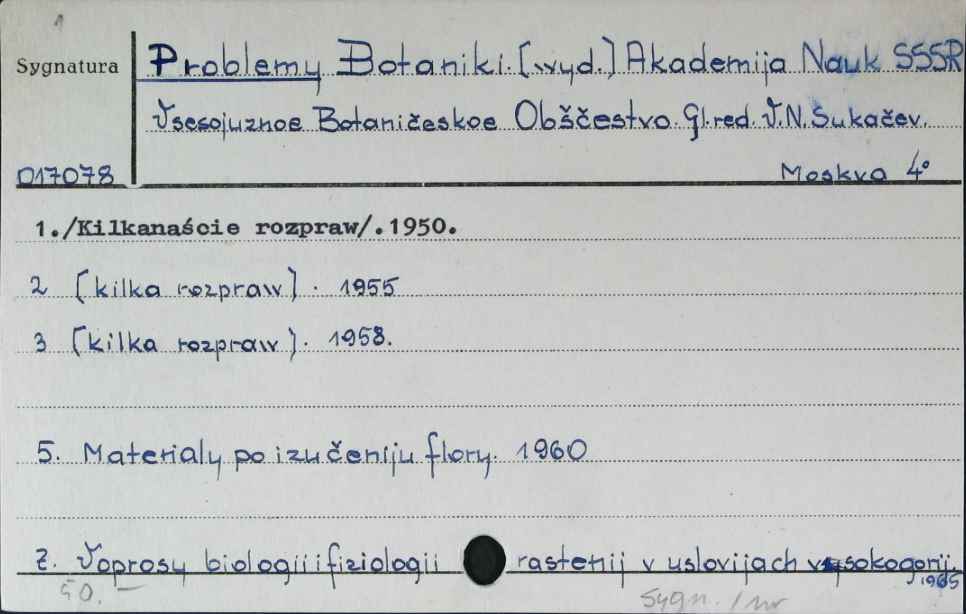 1
Sygnatura
Problemy Botaniki. [wyd.] Akademija Nauk SSSR
Vsesojuznoe Botaničeskoe Obščestvo. Gl. red. V. N. Sukačev.
017078
Moskva 4°
1./Kilkanaście rozpraw/.1950.
2 [kilka rozpraw]. 1955
3 [kilka rozpraw]. 1958.
5. Materialy po izučeniju flory. 1960
7. Voprosy biologii i fiziologii rastenij v uslovijach vysokogorij.
1965
50. –
Sygn. / nr